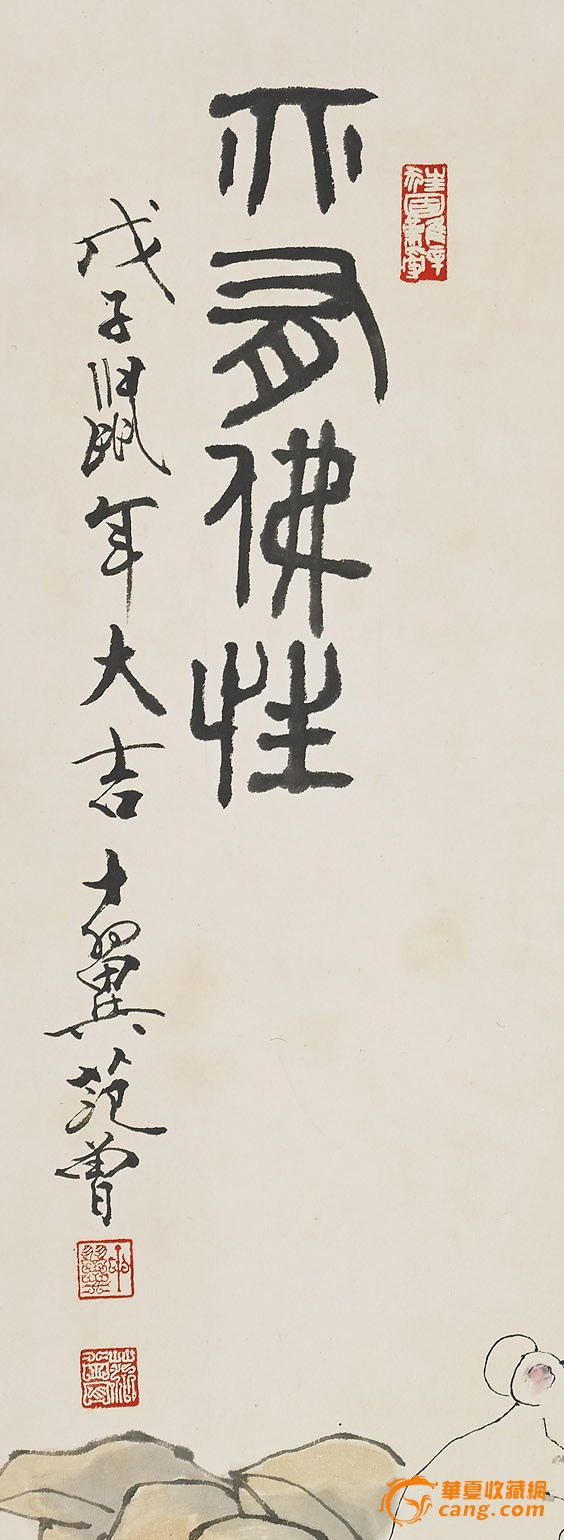 亦有佛性
戊子鼠年大吉十翼范曾
十翼
華夏收藏網
cang.com